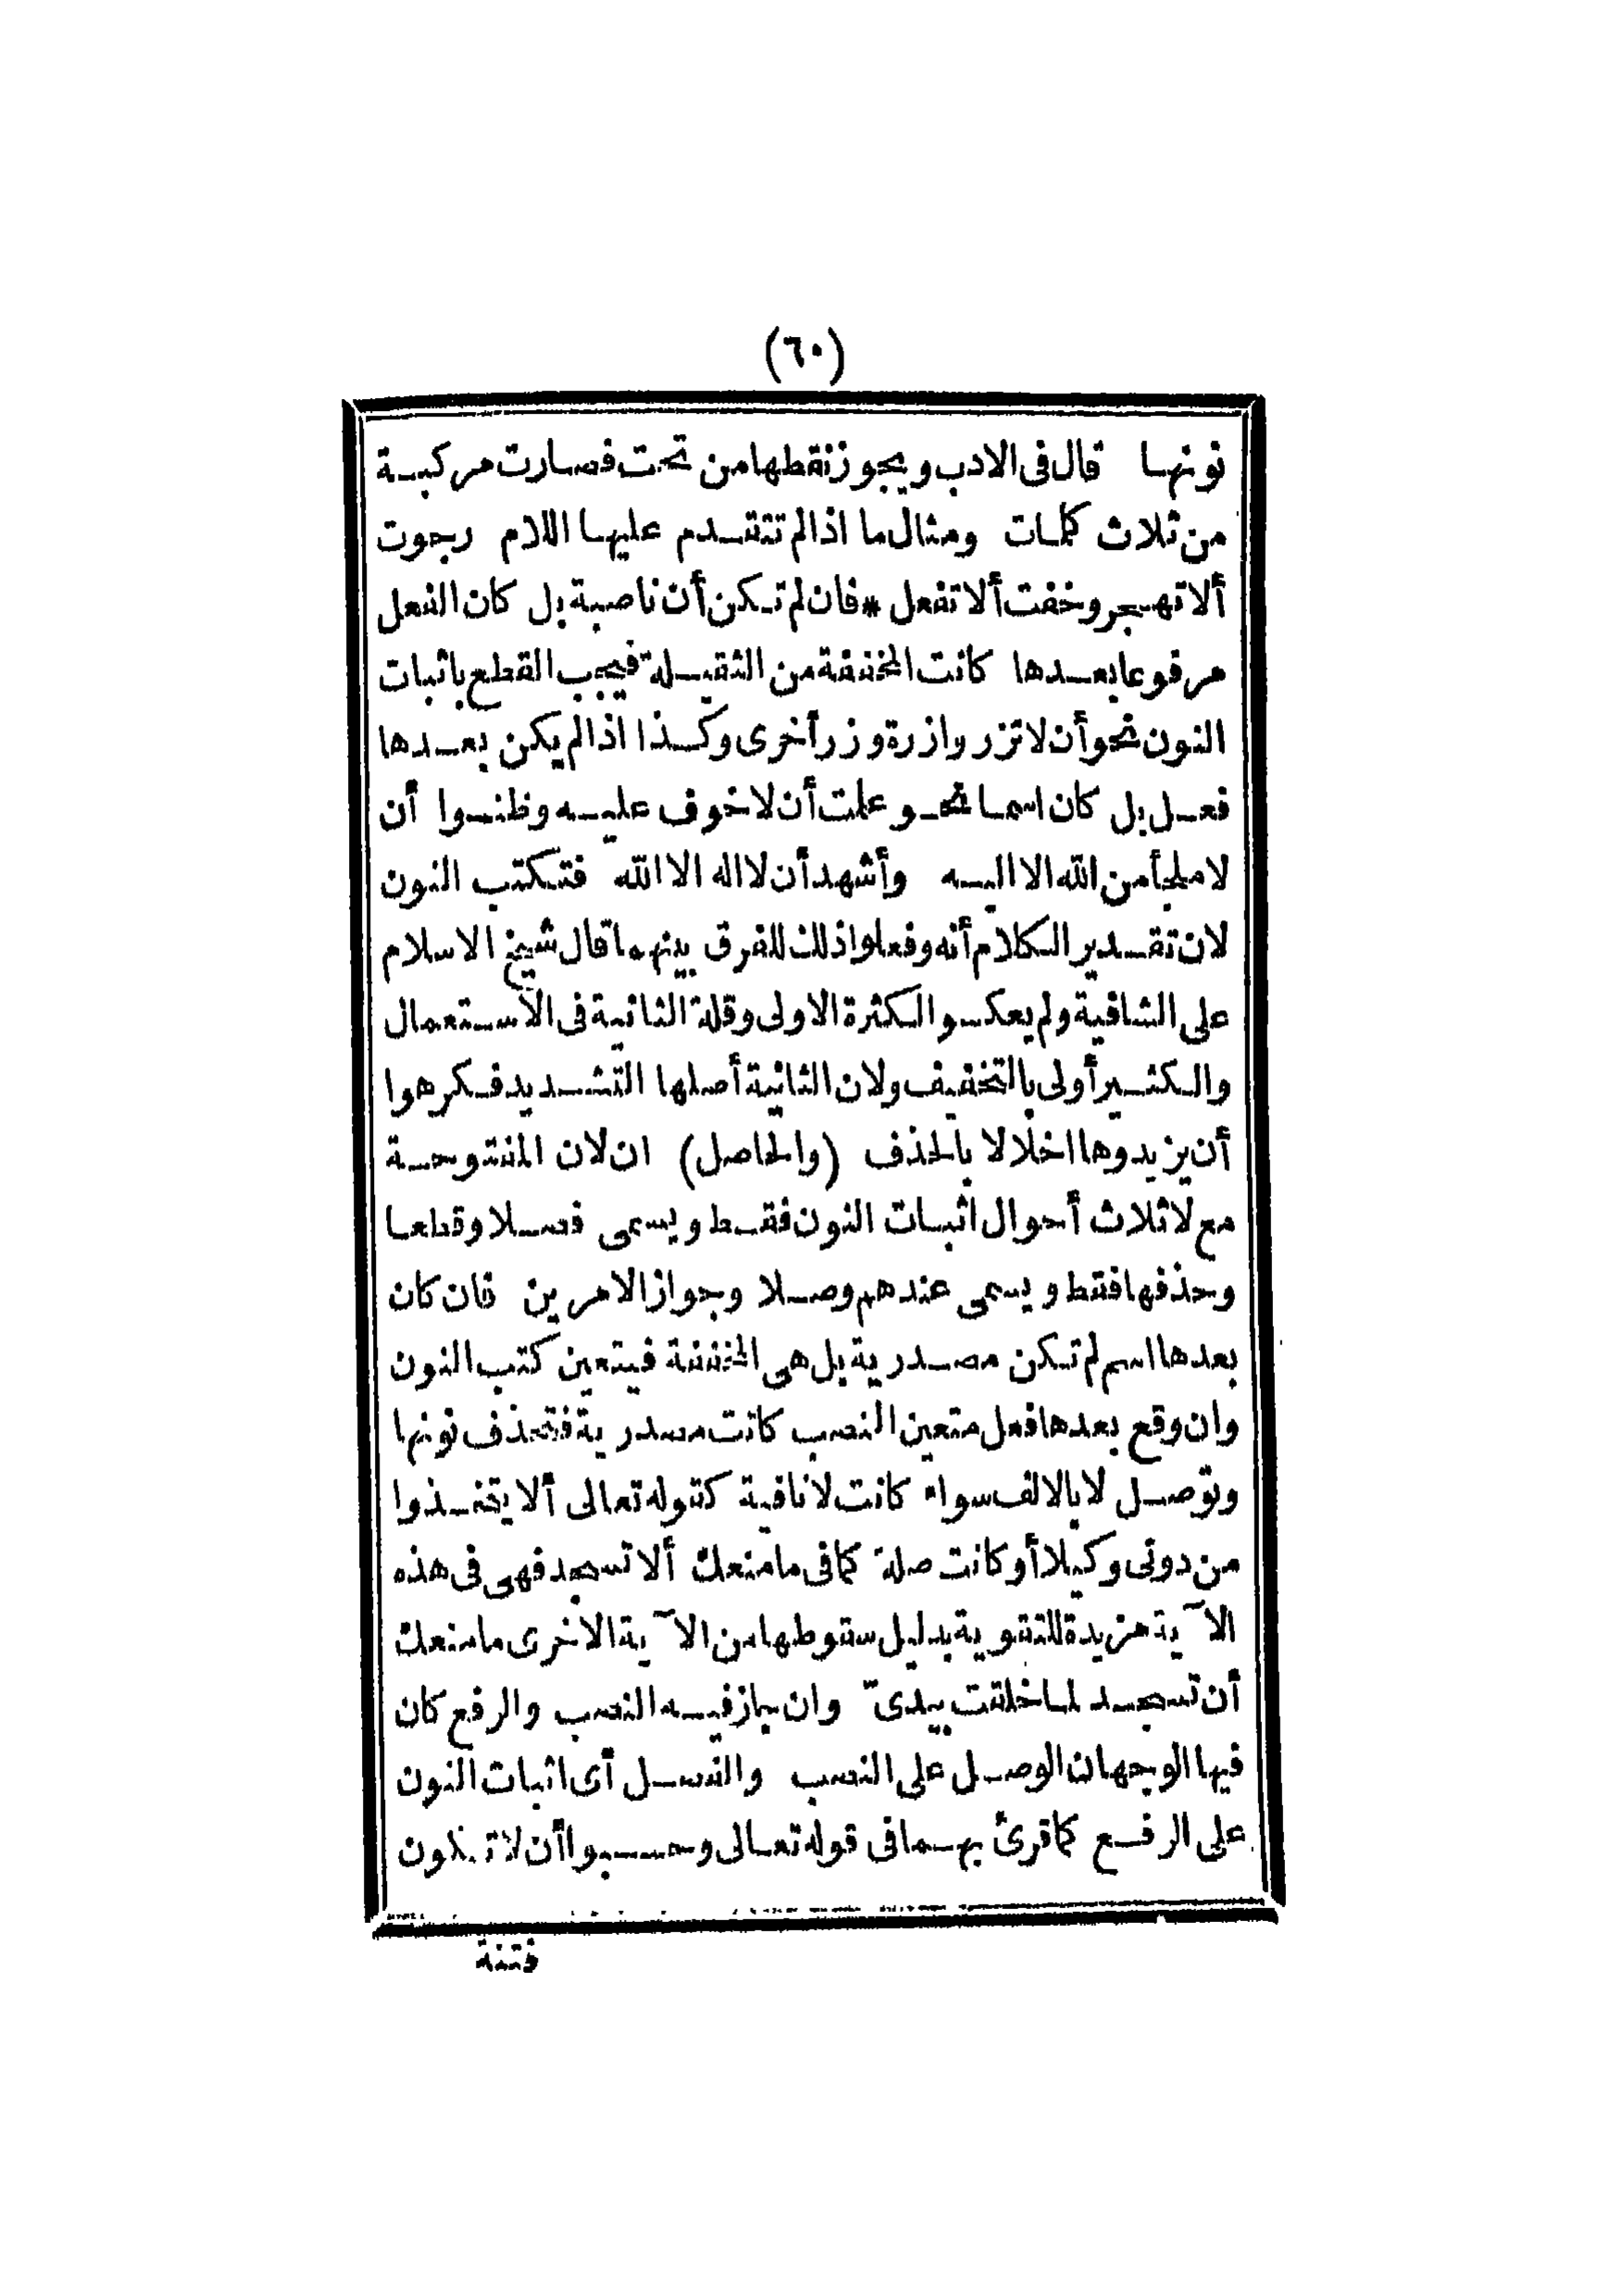 (٦٠)
نونها قال فى الادب ويجوز نقطها من تحت فصارت مركبة
من ثلاث كلمات ومثال ما اذا لم تتقدم عليها اللام رجوت
ألا تهجر وخفت ألا تفعل * فان لم تكن أن ناصبة بل كان الفعل
مرفوعا بعدها كانت المخففة من الثقيلة فيجب القطع باثبات
النون نحو أن لا تزر وازرة وزر أخرى وكذا اذا لم يكن بعدها
فعل بل كان اسما نحو علمت أن لا خوف عليه وظنوا أن
لا ملجأ من الله الا اليه وأشهد أن لا اله الا الله فتكتب النون
لان تقدير الكلام أنه وفعلوا ذلك للفرق بينهما قال شيخ الاسلام
على الشافية ولم يعكسوا لكثرة الاولى وقلة الثانية فى الاستعمال
والكثير أولى بالتخفيف ولان الثانية أصلها التشديد فكرهوا
أن يزيدوها اخلالا بالحذف (والحاصل) ان لان المفتوحة
مع لا ثلاث أحوال اثبات النون فقط ويسمى فصلا وقطعا
وحذفها فقط ويسمى عندهم وصلا وجواز الامرين فان كان
بعدها اسم لم تكن مصدرية بل هى المخففة فيتعين كتب النون
وان وقع بعدها فعل متعين النصب كانت مصدرية فتحذف نونها
وتوصل لا بالالف سواء كانت لا نافية كقوله تعالى ألا يتخذوا
من دونى وكيلا أو كانت صلة كما فى ما منعك ألا تسجد فهى فى هذه
الآية مزيدة للتقوية بدليل سقوطها من الآية الاخرى ما منعك
أن تسجد لما خلقت بيدىّ وان جاز فيه النصب والرفع كان
فيها الوجهان الوصل على النصب والفصل أى اثبات النون
على الرفع كما قرئ بهما فى قوله تعالى وحسبوا أن لا تكون
فتنة